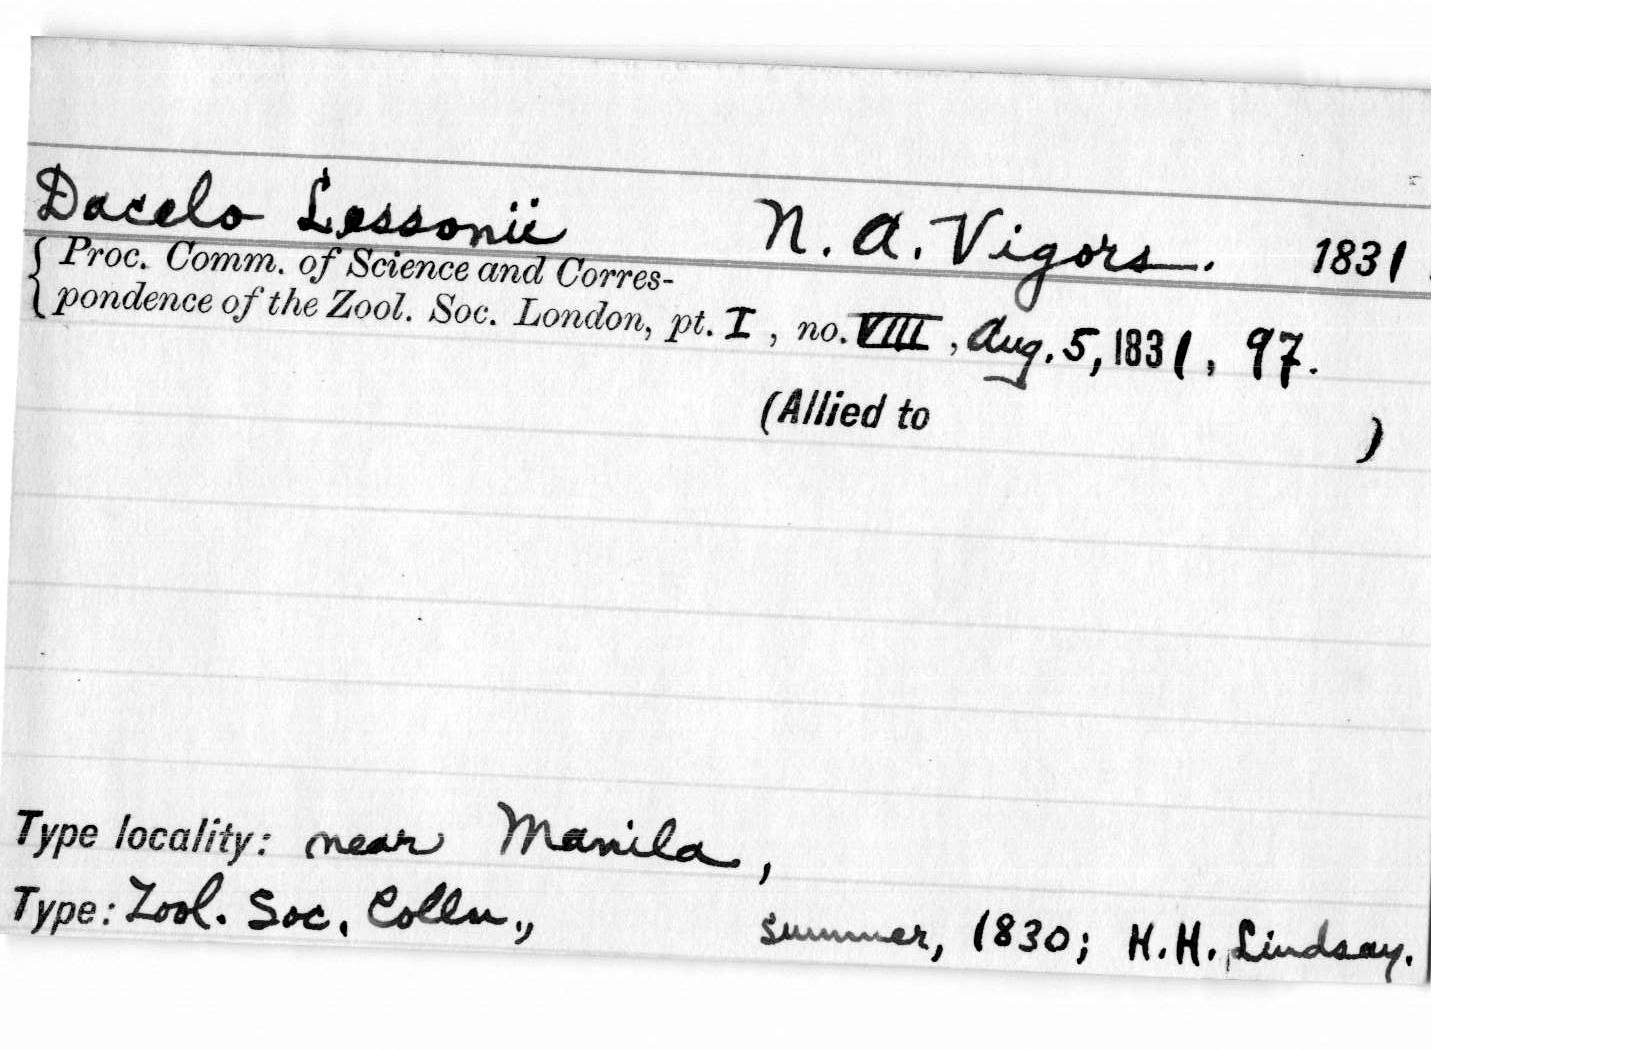 Dacelo Lessonii N. A. Vigors. 1831.
{ Proc. Comm. of Science and Corres-
pondence of the Zool. Soc. London, pt. I, no. VIII, Aug. 5, 1831, 97.
(Allied to )
Type locality: near Manila,
Type: Zool. Soc. Colln., summer, 1830; H. H. Lindsay.